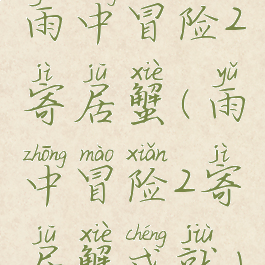 雨中冒险2
jì jū xiè yǔ
寄居蟹(雨
zhōng mào xiǎn jì
中冒险2寄
jū xiè chéng jiù
居蟹成就)